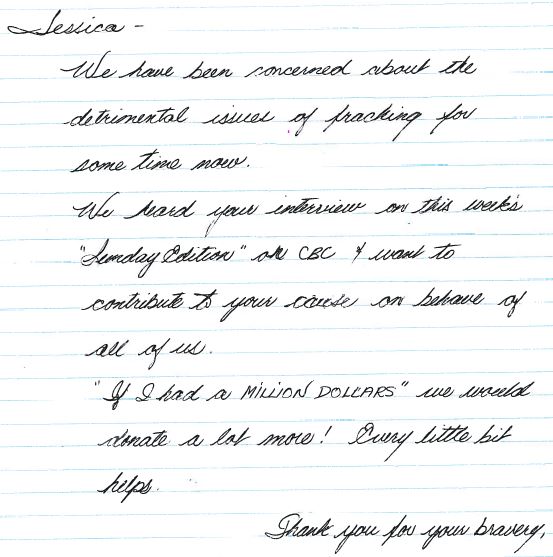 Jessica -
We have been concerned about the
detrimental issues of fracking for
some time now.
We heard your interview on this week's
"Sunday Edition" on CBC & want to
contribute to your cause on behave of
all of us.
"If I had a MILLION DOLLARS" we would
donate a lot more! Every little bit
helps.
Thank you for your bravery,